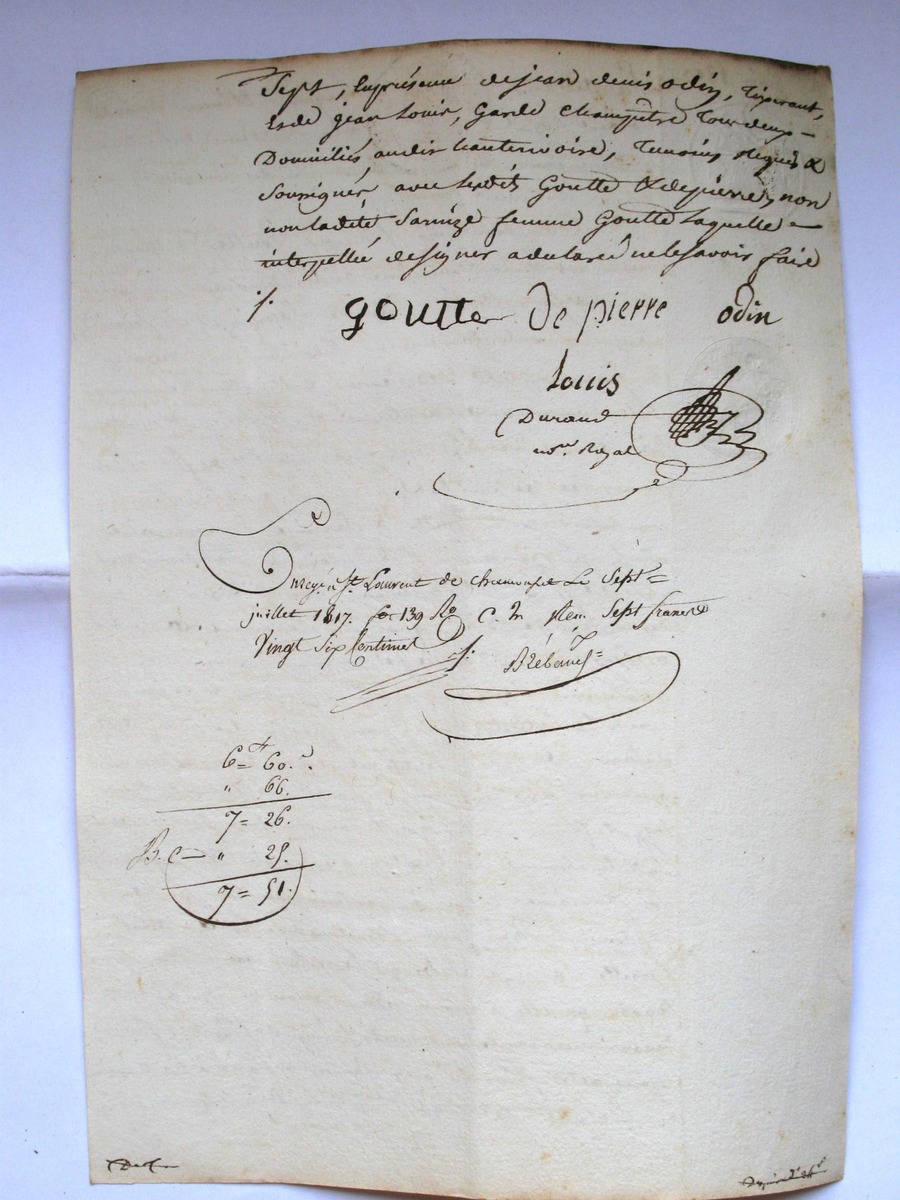 Sept, en présence de jean denis odin, tiserant,
et de jean Louis, Garde Champêtre Tous deux
Domiciliés audit hauterivoire, temoins requis &
Soussignés avec lesdits Goutte & depierre, non
non ladite femme Goutte Laquelle
interpellée de signer a déclaré ne le savoir faire
goutte De pierre odin
Louis
Durand
no.re Royal
Enreg. à St. Laurent de chamousset Le Sept
juillet 1817. fo. 139 Ro C. Sept francs
Vingt Six Centimes
6 = 60.
" 66.
7 = 26.
" 25.
7 = 51.